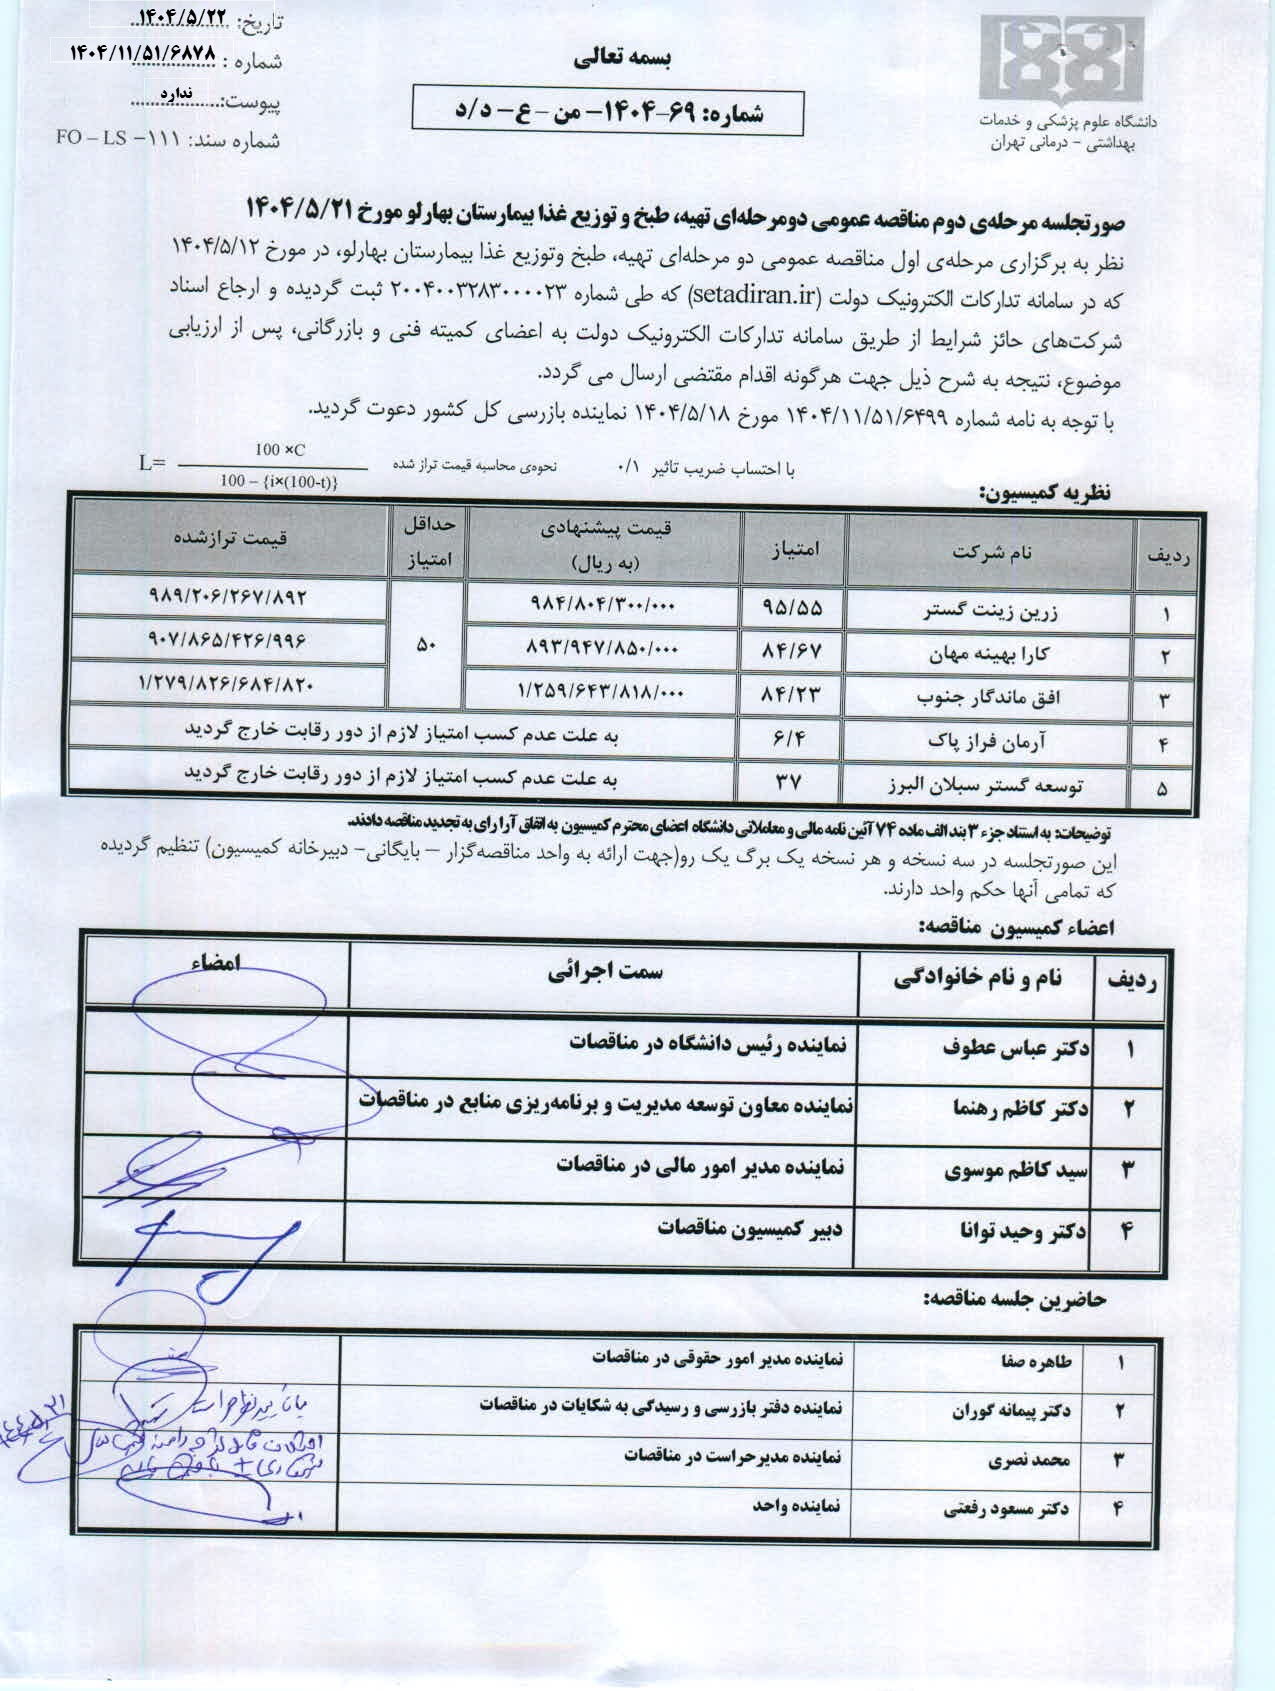 تاریخ: ۱۴۰۴/۵/۲۲
شماره : ۱۴۰۴/۱۱/۵۱/۶۸۷۸
پیوست: ندارد
شماره سند: FO – LS –۱۱۱
دانشگاه علوم پزشکی و خدمات
بهداشتی - درمانی تهران
بسمه تعالی
شماره: ۶۹-۱۴۰۴- من - ع - د/د
صورتجلسه مرحله‌ی دوم مناقصه عمومی دومرحله‌ای تهیه، طبخ و توزیع غذا بیمارستان بهارلو مورخ ۱۴۰۴/۵/۲۱
نظر به برگزاری مرحله‌ی اول مناقصه عمومی دو مرحله‌ای تهیه، طبخ وتوزیع غذا بیمارستان بهارلو، در مورخ ۱۴۰۴/۵/۱۲
که در سامانه تدارکات الکترونیک دولت (setadiran.ir) که طی شماره ۲۰۰۴۰۰۳۲۸۳۰۰۰۰۲۳ ثبت گردیده و ارجاع اسناد
شرکت‌های حائز شرایط از طریق سامانه تدارکات الکترونیک دولت به اعضای کمیته فنی و بازرگانی، پس از ارزیابی
موضوع، نتیجه به شرح ذیل جهت هرگونه اقدام مقتضی ارسال می گردد.
با توجه به نامه شماره ۱۴۰۴/۱۱/۵۱/۶۴۹۹ مورخ ۱۴۰۴/۵/۱۸ نماینده بازرسی کل کشور دعوت گردید.
با احتساب ضریب تاثیر ۰/۱ نحوه‌ی محاسبه قیمت تراز شده L= 100 ×C
100 – {i×(100-t)}
نظریه کمیسیون:
ردیف نام شرکت امتیاز قیمت پیشنهادی (به ریال) حداقل امتیاز قیمت ترازشده
۱ زرین زینت گستر ۹۵/۵۵ ۹۸۴/۸۰۴/۳۰۰/۰۰۰ ۵۰ ۹۸۹/۲۰۶/۲۶۷/۸۹۲
۲ کارا بهینه مهان ۸۴/۶۷ ۸۹۳/۹۴۷/۸۵۰/۰۰۰ ۹۰۷/۸۶۵/۴۲۶/۹۹۶
۳ افق ماندگار جنوب ۸۴/۲۳ ۱/۲۵۹/۶۴۳/۸۱۸/۰۰۰ ۱/۲۷۹/۸۲۶/۶۸۴/۸۲۰
۴ آرمان فراز پاک ۶/۴ به علت عدم کسب امتیاز لازم از دور رقابت خارج گردید
۵ توسعه گستر سبلان البرز ۳۷ به علت عدم کسب امتیاز لازم از دور رقابت خارج گردید
توضیحات: به استناد جزء ۳ بند الف ماده ۷۴ آئین نامه مالی و معاملاتی دانشگاه اعضای محترم کمیسیون به اتفاق آرا رای به تجدید مناقصه دادند.
این صورتجلسه در سه نسخه و هر نسخه یک برگ یک رو(جهت ارائه به واحد مناقصه‌گزار – بایگانی- دبیرخانه کمیسیون) تنظیم گردیده
که تمامی آنها حکم واحد دارند.
اعضاء کمیسیون مناقصه:
ردیف نام و نام خانوادگی سمت اجرائی امضاء
۱ دکتر عباس عطوف نماینده رئیس دانشگاه در مناقصات
۲ دکتر کاظم رهنما نماینده معاون توسعه مدیریت و برنامه‌ریزی منابع در مناقصات
۳ سید کاظم موسوی نماینده مدیر امور مالی در مناقصات
۴ دکتر وحید توانا دبیر کمیسیون مناقصات
حاضرین جلسه مناقصه:
۱ طاهره صفا نماینده مدیر امور حقوقی در مناقصات
۲ دکتر پیمانه گوران نماینده دفتر بازرسی و رسیدگی به شکایات در مناقصات
۳ محمد نصری نماینده مدیرحراست در مناقصات
۴ دکتر مسعود رفعتی نماینده واحد